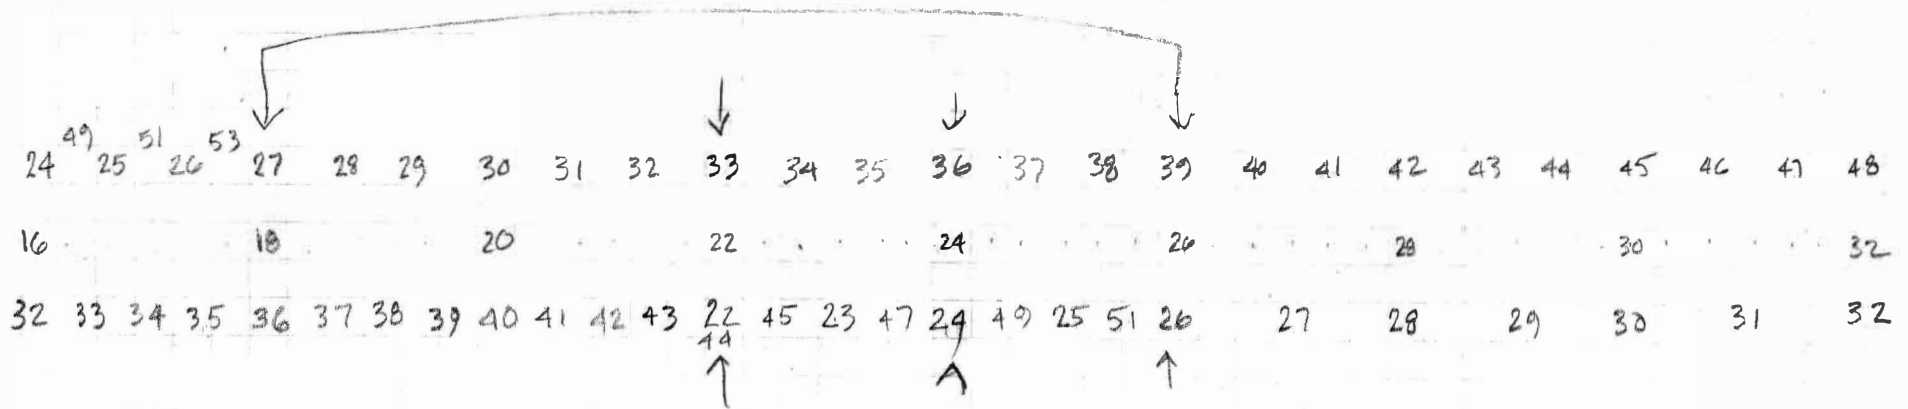 49 51 53
24 25 26 27 28 29 30 31 32 33 34 35 36 37 38 39 40 41 42 43 44 45 46 47 48
16 18 20 22 24 26 28 30 32
32 33 34 35 36 37 38 39 40 41 42 43 22 45 23 47 24 49 25 51 26 27 28 29 30 31 32
44